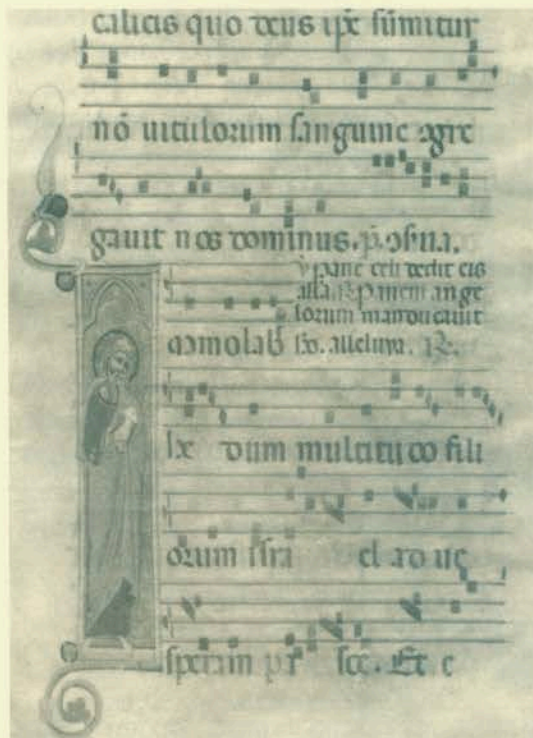 calicis quo deus ip̄e sumitur
nō uitulorum sanguine 9gre
gauit nos dominus.
℣ panē celi dedit eis
alla ℟ Panem ange
lorum manducauit
mmolab̄ ho. alleluya. ℟.
he dum multitudo fili
orum isra el ad ue
speram pa sce. Et e